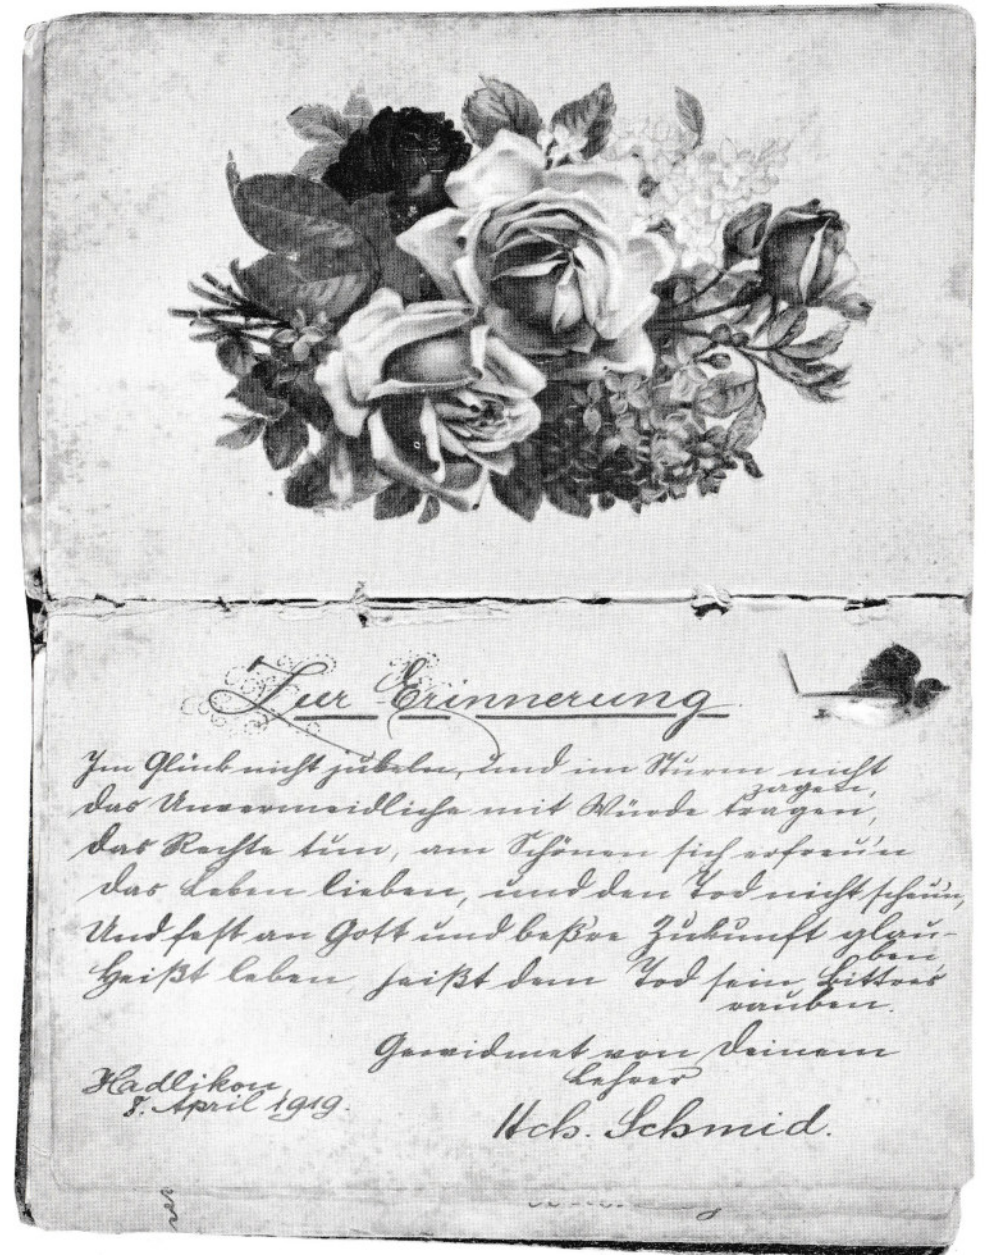 Zur Erinnerung
Im Glück nicht jubeln, und im Sturm nicht
zagen,
das Unvermeidliche mit Würde tragen,
das Rechte tun, am Schönen sich erfreu'n
das Leben lieben, und den Tod nicht scheu'n,
Und fest an Gott und beßre Zukunft glau-
ben,
Heißt leben, heißt dem Tod sein Bittres
rauben.
Gewidmet von Deinem
Lehrer
Hadlikon,
8. April 1919.
Hch. Schmid.